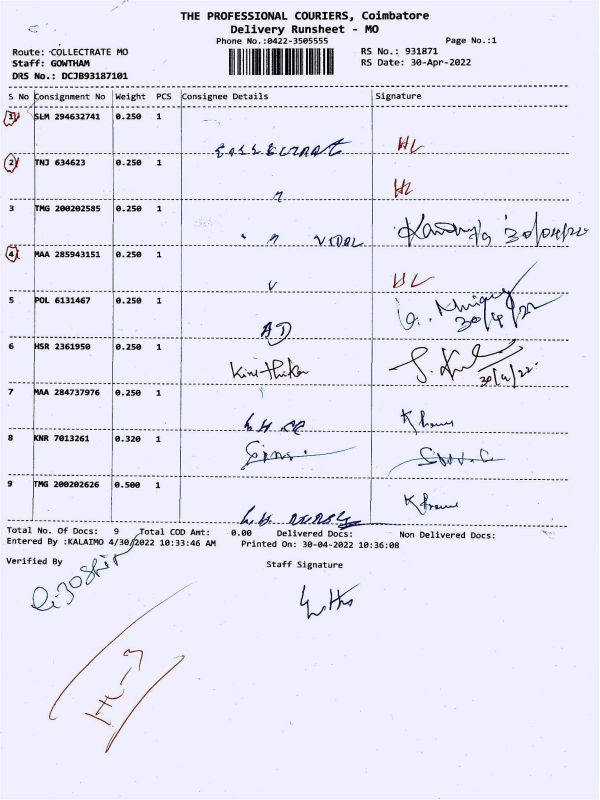 THE PROFESSIONAL COURIERS, Coimbatore
Delivery Runsheet - MO
Phone No.:0422-3505555
Page No.:1
Route: COLLECTRATE MO
RS No.: 931871
Staff: GOWTHAM
RS Date: 30-Apr-2022
DRS No.: DCJB93187101
S No Consignment No Weight PCS Consignee Details Signature
1 SLM 294632741 0.250 1
HL
2 TNJ 634623 0.250 1
HL
3 TMG 200202585 0.250 1
30/04/22
4 MAA 285943151 0.250 1
HL
5 POL 6131467 0.250 1
30/4/22
6 HSR 2361950 0.250 1
30/4/22
7 MAA 284737976 0.250 1
8 KNR 7013261 0.320 1
9 TMG 200202626 0.500 1
Total No. Of Docs: 9 Total COD Amt: 0.00 Delivered Docs: Non Delivered Docs:
Entered By :KALAIMO 4/30/2022 10:33:46 AM Printed On: 30-04-2022 10:36:08
Verified By
Staff Signature
HL-3